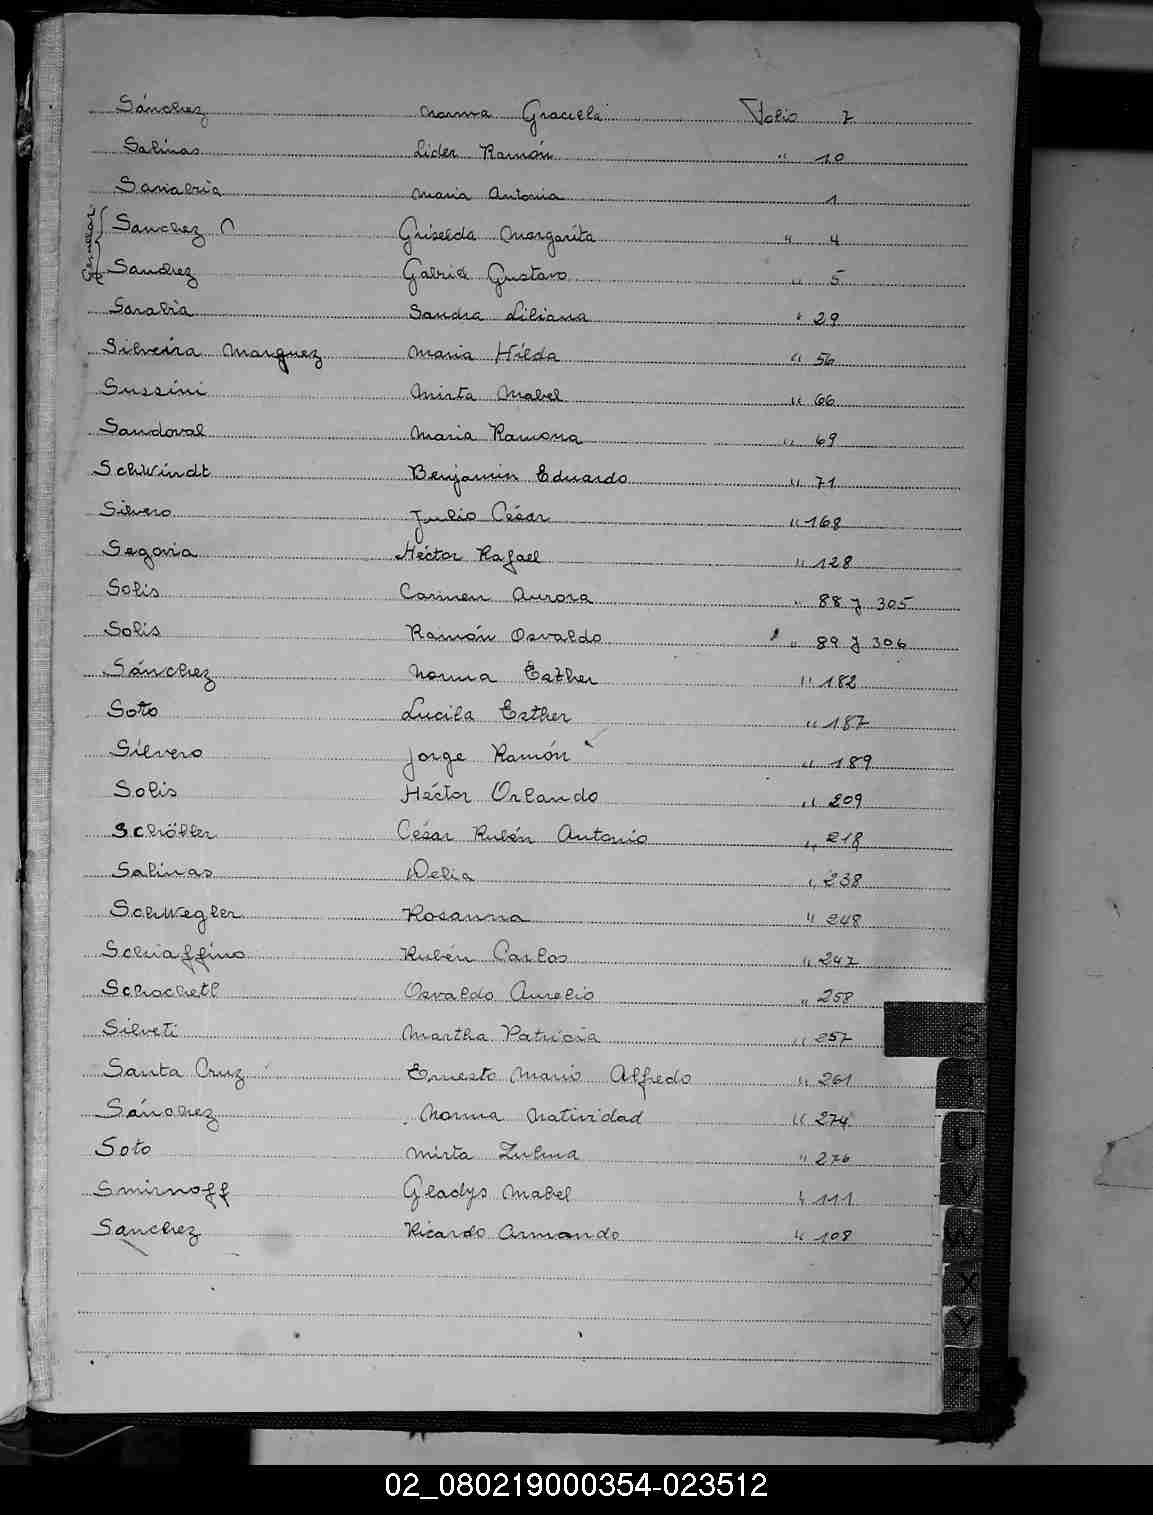 Sánchez Norma Graciela Folio 7
Salinas Lider Ramón " 10
Sanabria Maria Antonia 1
Sanchez Griselda Margarita " 4
Gemellar
Sanchez Gabriel Gustavo " 5
Sarabia Sandra Liliana " 29
Silveira Marquez Maria Hilda " 56
Sussini Mirta Mabel " 66
Sandoval Maria Ramona " 69
Schwindt Benjamin Eduardo " 71
Silvero Julio César " 168
Segovia Héctor Rafael " 128
Solis Carmen Aurora " 88 y 305
Solis Ramón Osvaldo " 89 y 306
Sánchez Norma Esther " 182
Soto Lucila Esther " 187
Silvero Jorge Ramón " 189
Solis Héctor Orlando " 209
Schröller César Rubén Antonio " 218
Salinas Delia " 238
Schwegler Rosanna " 248
Schiaffino Rubén Carlos " 247
Schachetl Osvaldo Aurelio " 258
Silveti Martha Patricia " 257
Santa Cruz Ernesto Mario Alfredo " 261
Sánchez Norma Natividad " 274
Soto Mirta Zulma " 276
Smirnoff Gladys Mabel " 111
Sanchez Ricardo Armando " 108
S
U
V
W
X
Y
02_080219000354-023512